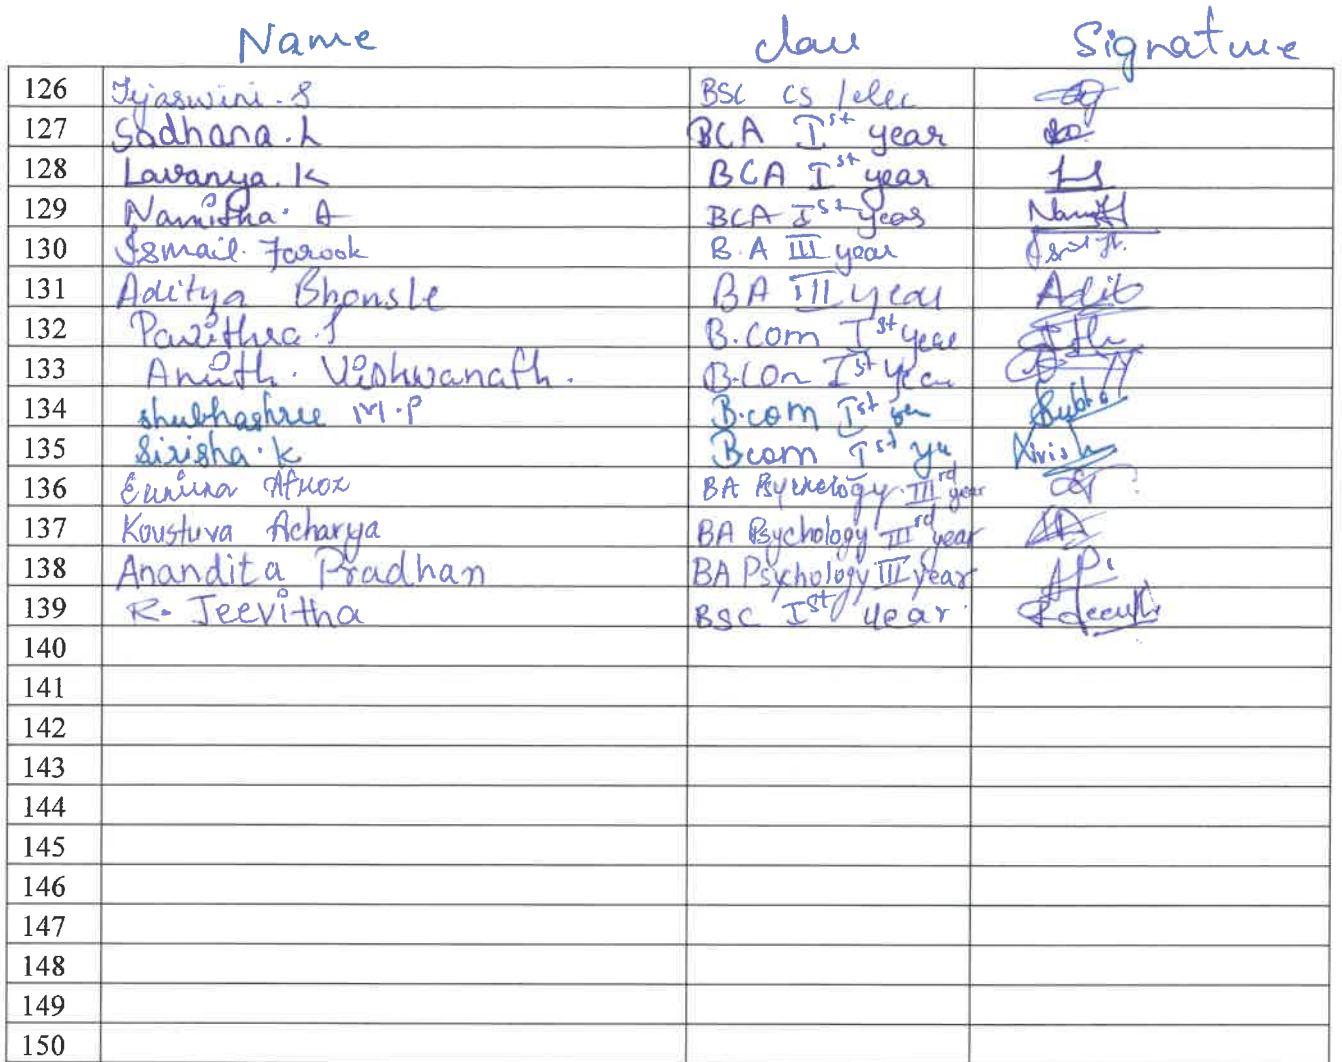 Name Class Signature
126 Tejaswini. S BSC CS /elec
127 Sadhana. L BCA Ist year
128 Lavanya. K BCA Ist year
129 Namitha. A BCA Ist year
130 Ismail. Farook B.A III year
131 Aditya Bhonsle BA III year Adit
132 Pavithra. S B.Com Ist year
133 Vishwanath. B.Com Ist year
134 shubhashree M.P B.com Ist
135 Sirisha. K Bcom Ist
136 BA Psychology IIIrd year
137 Koustuva Acharya BA Psychology IIIrd year
138 Anandita Pradhan BA Psychology III year
139 R. Jeevitha BSC Ist year
140
141
142
143
144
145
146
147
148
149
150